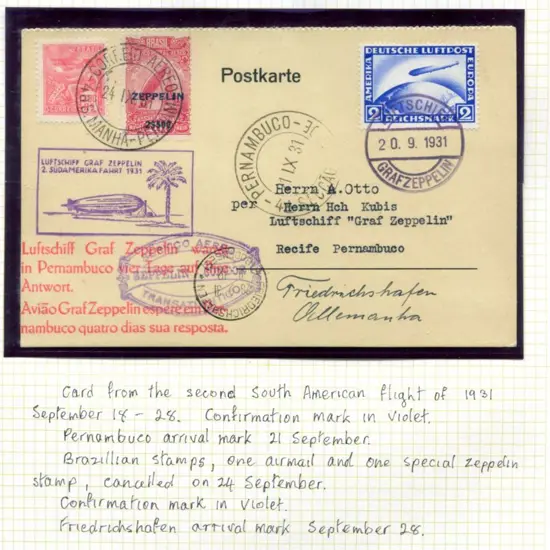 BRASIL
CORREIO AEREO
24 IX
MANHÃ-PE
ZEPPELIN
2$500
Postkarte
DEUTSCHE LUFTPOST
AMERIKA
EUROPA
2 REICHSMARK 2
20.9.1931
GRAFZEPPELIN
PERNAMBUCO
1 IX 31
LUFTSCHIFF GRAF ZEPPELIN
2. SÜDAMERIKAFAHRT 1931
Herrn A.Otto
per Herrn Hch Kubis
Luftschiff "Graf Zeppelin"
Recife Pernambuco
Luftschiff Graf Zeppelin
in Pernambuco vier Tage auf
Antwort.
Avião Graf Zeppelin espere em
nambuco quatro dias sua resposta.
ZEPPELIN
TRANSAT
FRIEDRICHSHAFEN
Friedrichshafen
Allemanha
Card from the second South American flight of 1931
September 18 - 28. Confirmation mark in violet.
Pernambuco arrival mark 21 September.
Brazillian stamps, one airmail and one special zeppelin
stamp, cancelled on 24 September.
Confirmation mark in violet.
Friedrichshafen arrival mark September 28.